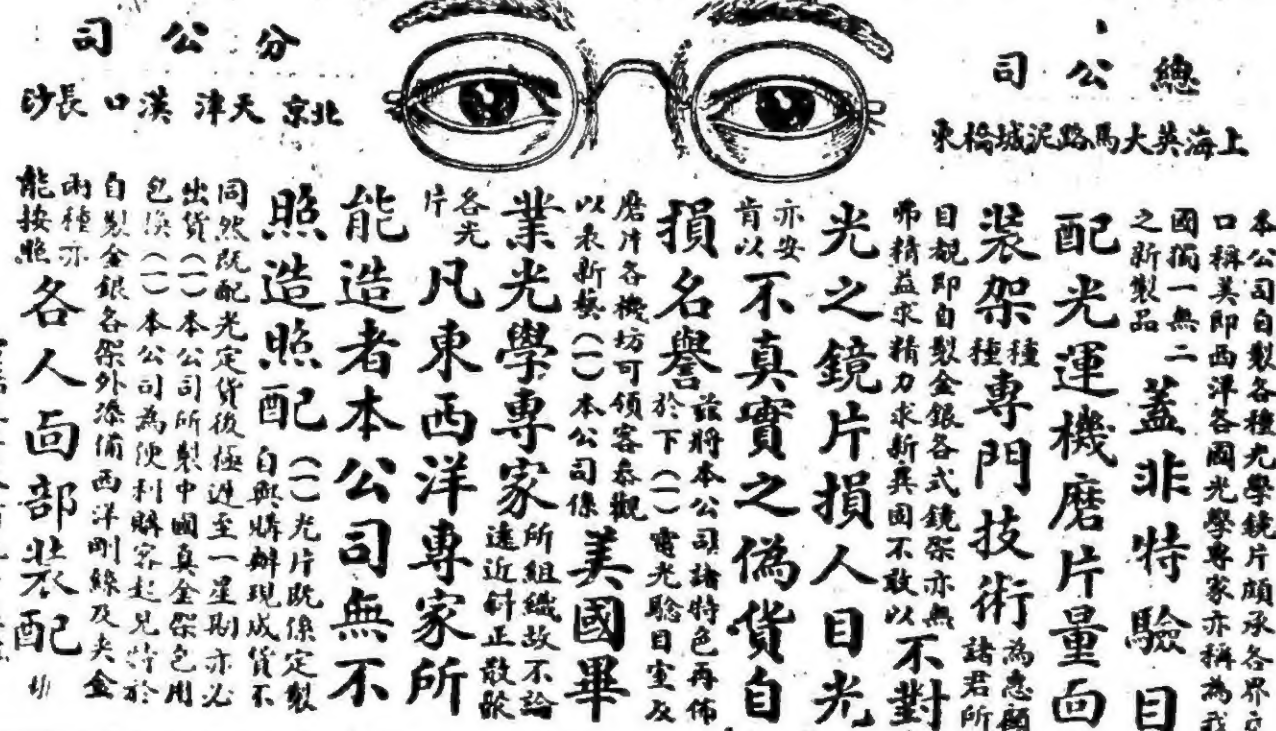 總公司
上海英大馬路泥城橋東
分公司
北京 天津 漢口 長沙
本公司自製各種光學鏡片頗承各界交
口稱美即西洋各國光學專家亦稱為我
國獨一無二
之新製品
蓋非特驗目
配光運機磨片量面
裝架種種專門技術為惠顧諸君所
目覩即自製金銀各式鏡架亦無
弗精益求精力求新異固不敢以不對
光之鏡片損人目光
亦安肯以不真實之偽貨自
損名譽茲將本公司諸特色再佈於下(一)電光驗目室及
磨片各機坊可領客參觀
以表新(一)本公司係美國畢
業光學專家所組織故不論遠近斜正散
各光片凡東西洋專家所
能造者本公司無不
照造照配(一)光片既係定製自與購辦現成貨不
同然既配光定貨後極遲至一星期亦必
出貨(一)本公司所製中國真金架包用
包換(一)本公司為便利購客起見特於
自製金銀各架外添備西洋剛絲及夾金
兩種亦
能按照各人面部裝配